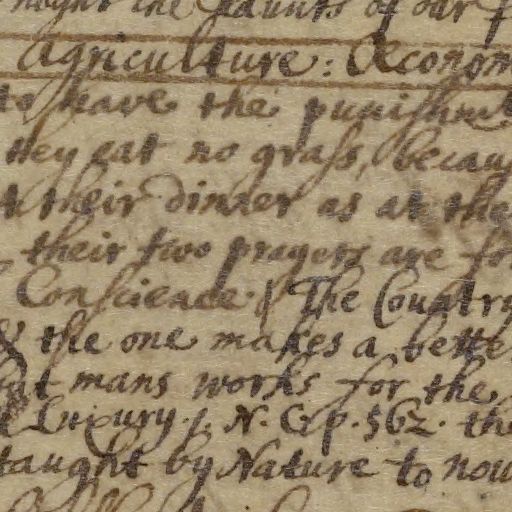 might the haunts of our
Agriculture: Œconom
to have the punishmt
they eat no grass, becau
t their dinner as at the
their two prayers are for
Conscience. || The Country
& the one makes a bette
mans works for the
Luxury. J. N. C. p. 562. th
taught by Nature to now